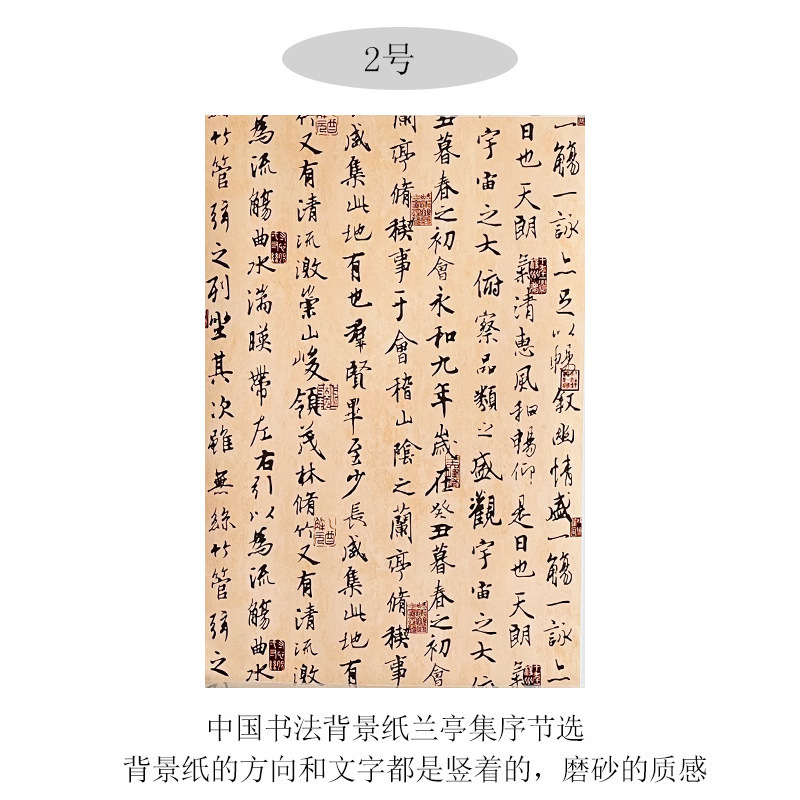 2号
一觴一詠亦足以暢叙幽情盛一觴一詠亦
日也天朗氣清惠風和暢仰是日也天朗氣
宇宙之大俯察品類之盛觀宇宙之大俯
丑暮春之初會永和九年歲在癸丑暮春之初會
蘭亭脩稧事于會稽山陰之蘭亭脩稧事
咸集此地有也羣賢畢至少長咸集此地有
竹又有清流激崇山峻領茂林脩竹又有清流激
為流觴曲水湍暎帶左右引以為流觴曲水
絲竹管弦之列坐其次雖無絲竹管弦之
中国书法背景纸兰亭集序节选
背景纸的方向和文字都是竖着的，磨砂的质感